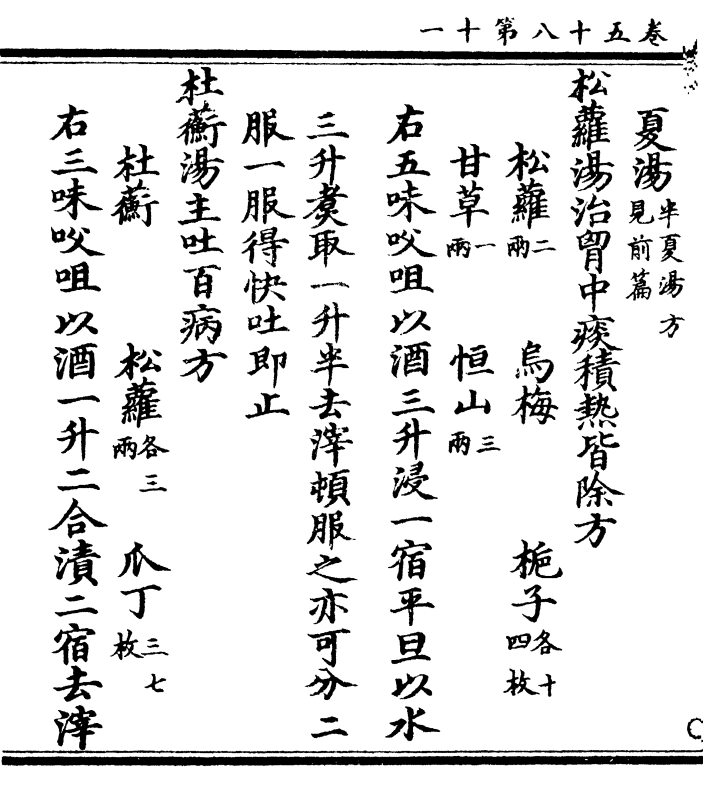 卷五十八第十一
夏湯半夏湯方見前篇
松蘿湯治胷中痰積熱皆除方
松蘿二兩 烏梅 梔子各十四枚
甘草一兩 恒山三兩
右五味㕮咀以酒三升浸一宿平旦以水
三升煑取一升半去滓頓服之亦可分二
服一服得快吐即止
杜蘅湯主吐百病方
杜蘅 松蘿各三兩 瓜丁三七枚
右三味㕮咀以酒一升二合漬二宿去滓